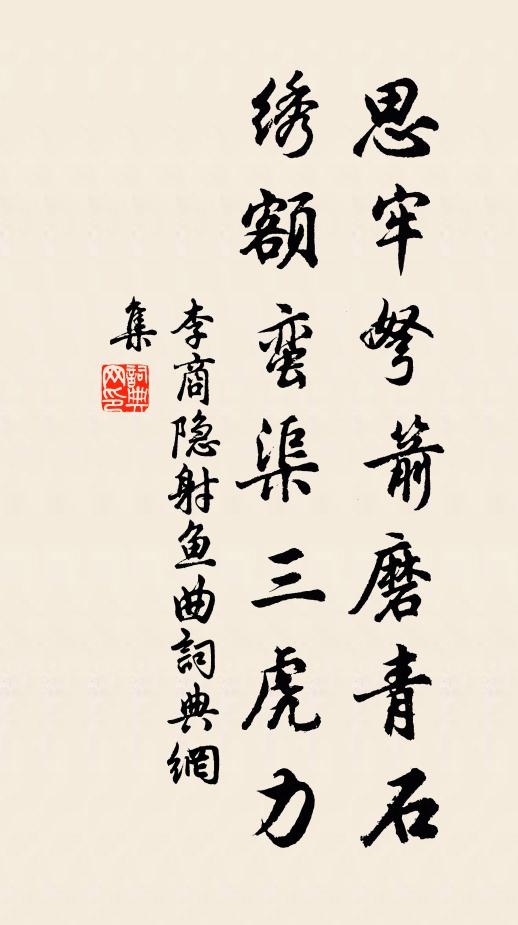 思牢弩箭磨青石
绣额蛮渠三虎力
李商隐射鱼曲詞典網
集
詞典
网印